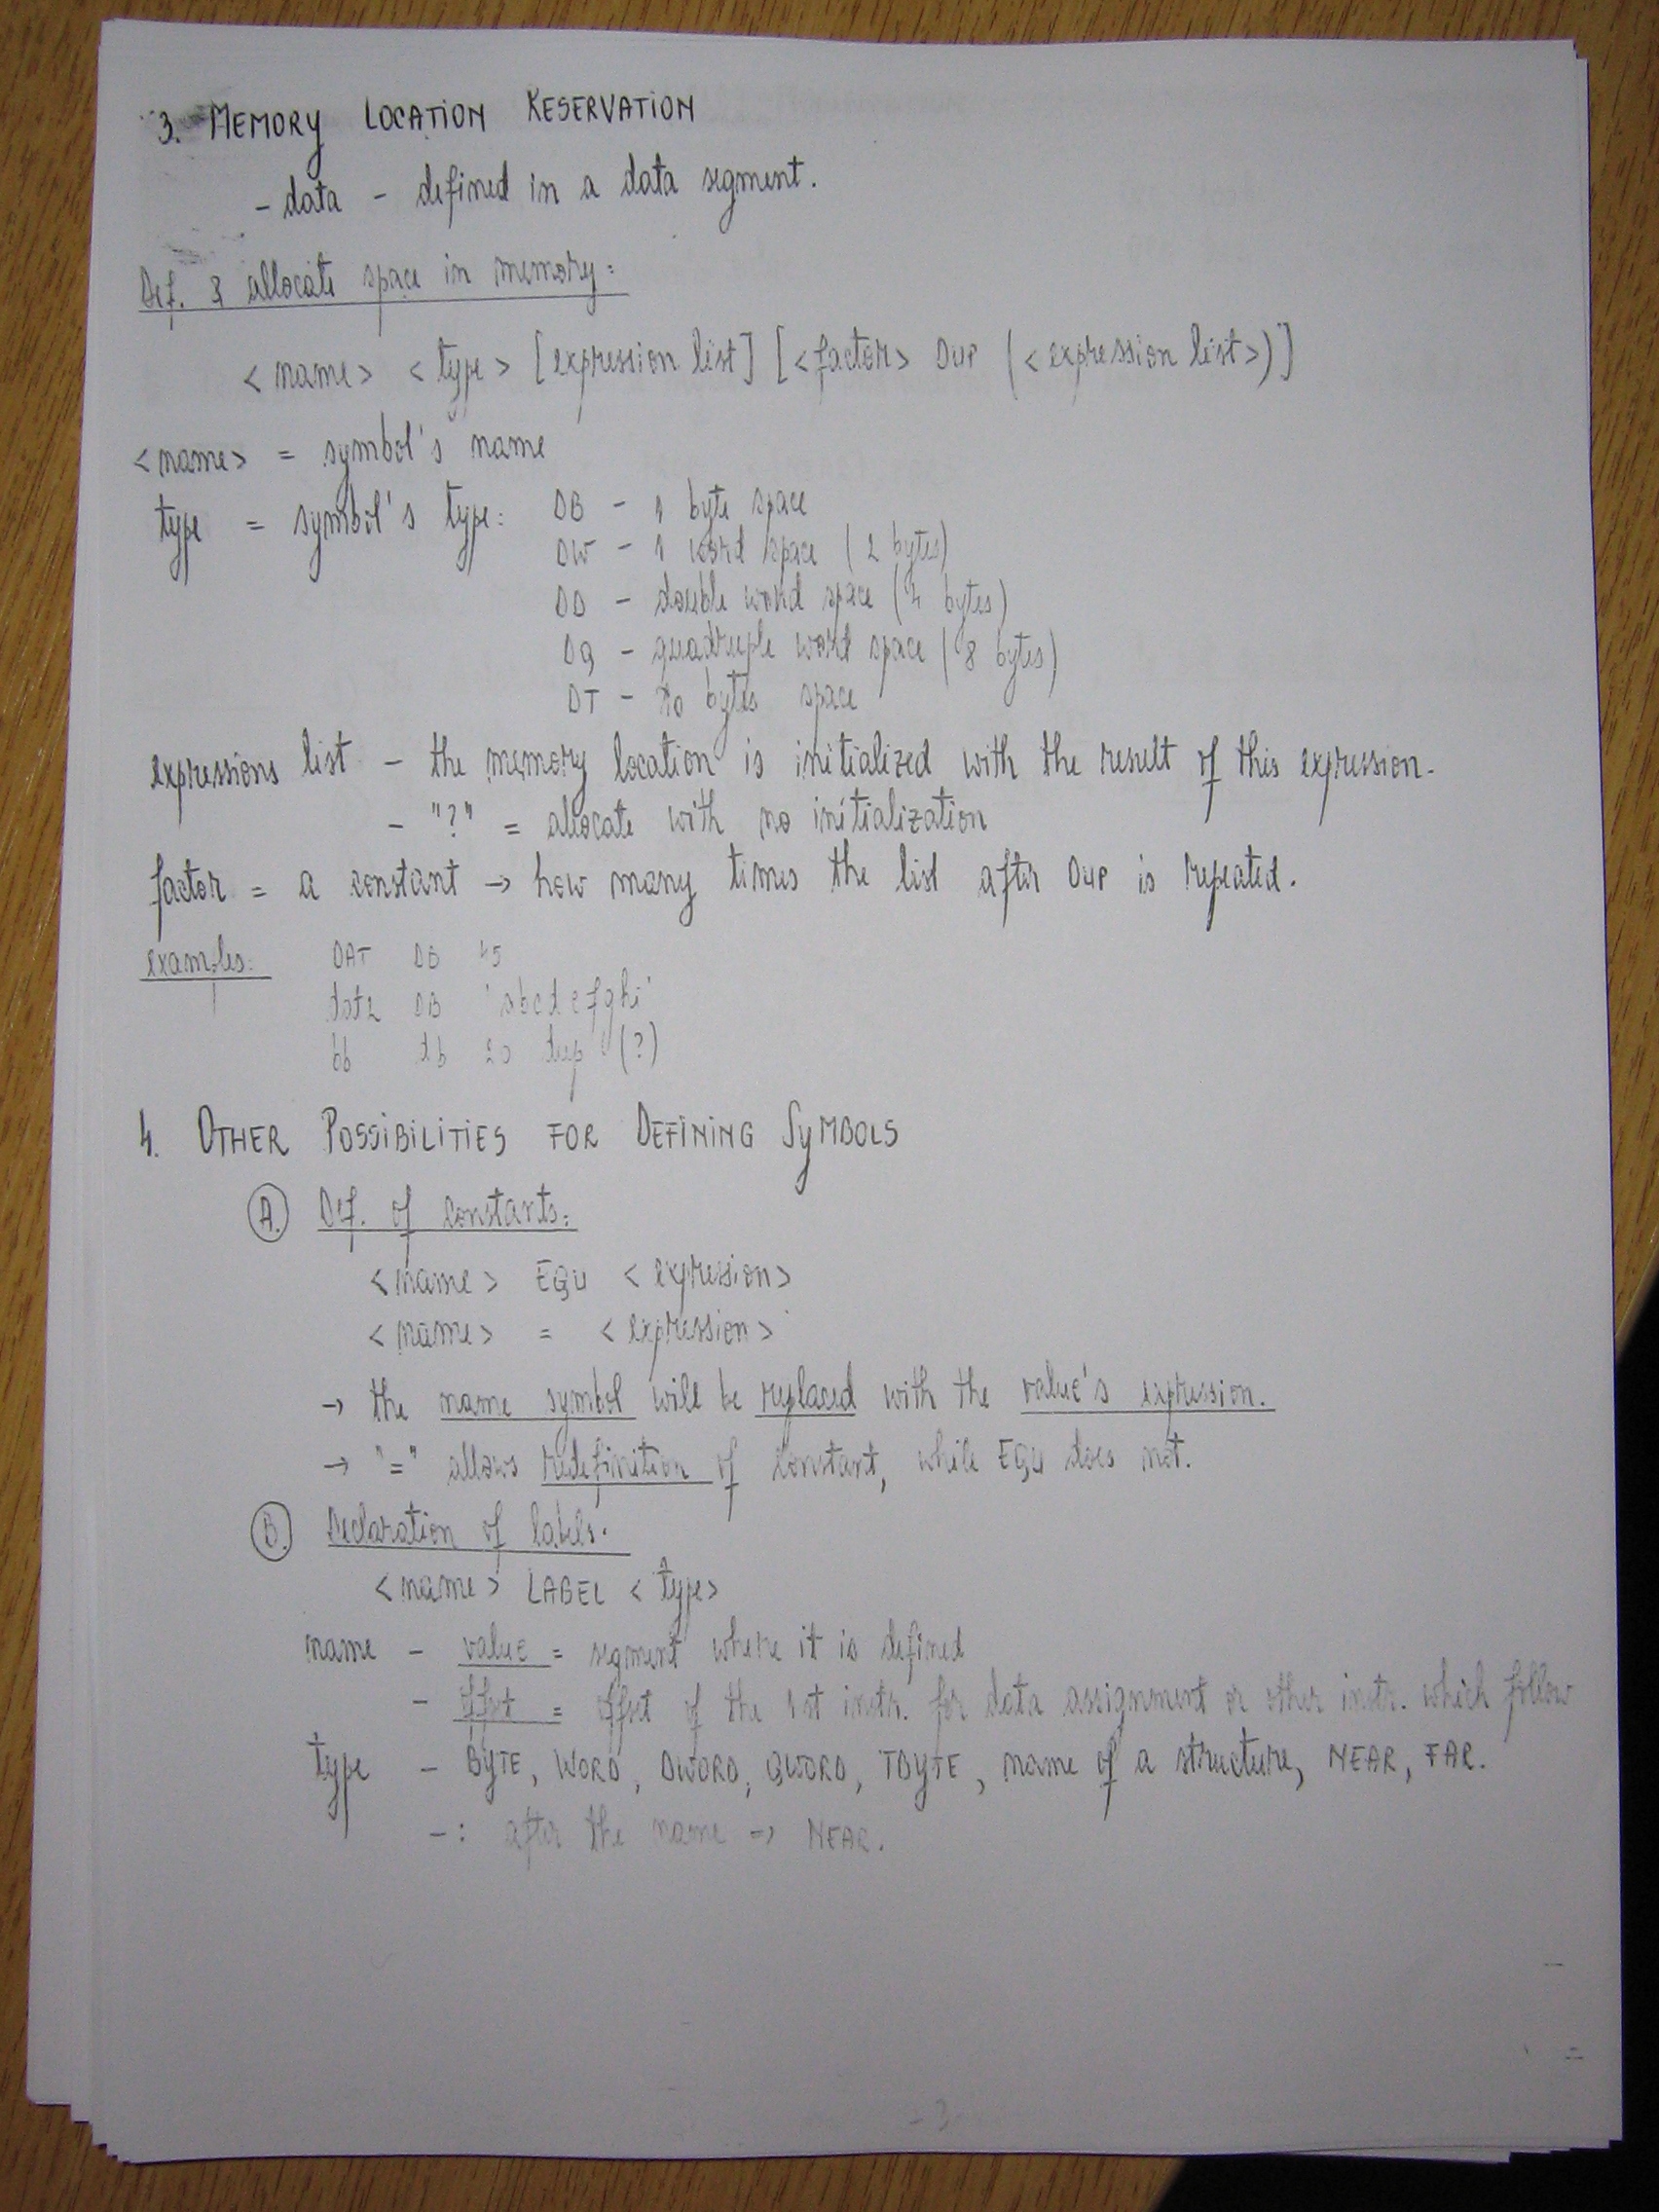 3. MEMORY LOCATION RESERVATION
- data - defined in a data segment.
Def. & allocate space in memory:
<name> <type> [expression list] [<factor> DUP (<expression list>)]
<name> = symbol's name
type = symbol's type: DB - 1 byte space
DW - 1 word space (2 bytes)
DD - double word space (4 bytes)
DQ - quadruple word space (8 bytes)
DT - 10 bytes space
expressions list - the memory location is initialized with the result of this expression.
- "?" = allocate with no initialization
factor = a constant → how many times the list after DUP is repeated.
examples: DAT DB 45
dat2 DB 'abcdefghi'
bb db 20 dup (?)
4. OTHER POSSIBILITIES FOR DEFINING SYMBOLS
A. Def. of constants:
<name> EQU <expression>
<name> = <expression>
→ the name symbol will be replaced with the value's expression.
→ "=" allows redefinition of constant, while EQU does not.
B. Declaration of labels.
<name> LABEL <type>
name - value = segment where it is defined
- offset = offset of the 1st instr. for data assignment or other instr. which follow
type - BYTE, WORD, DWORD, QWORD, TBYTE, name of a structure, NEAR, FAR.
- : after the name => NEAR.
- 3